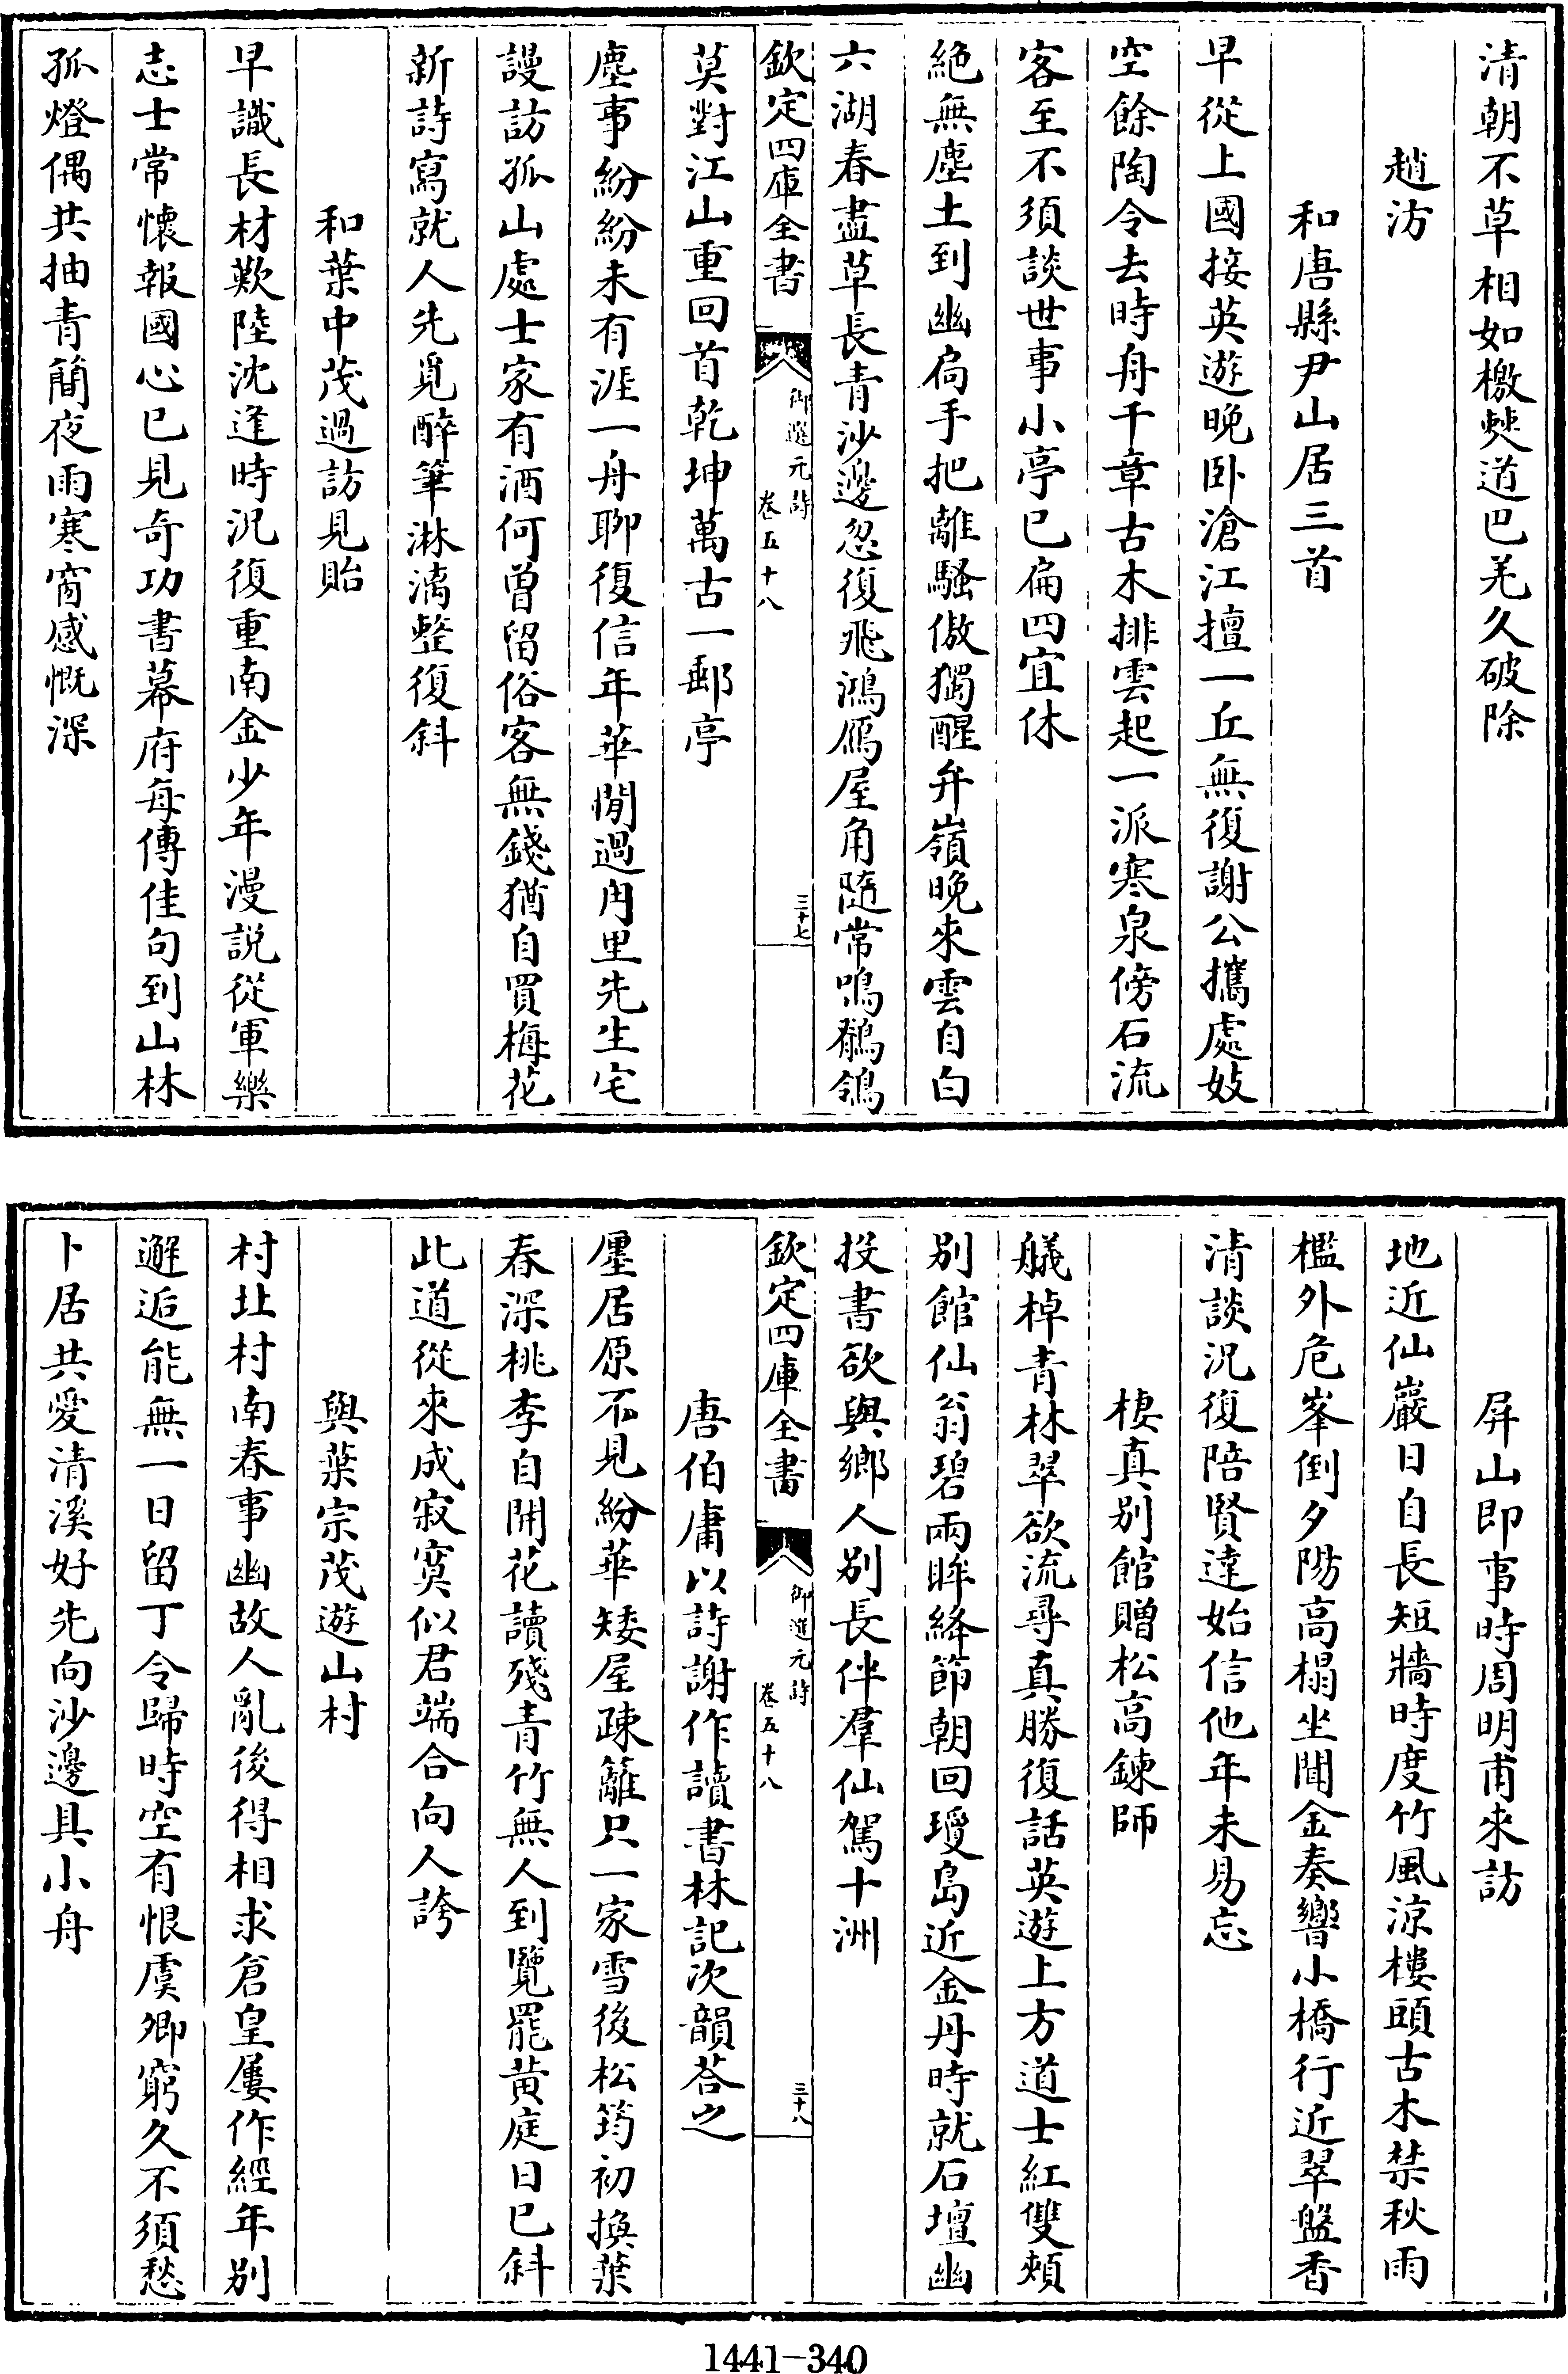 清朝不草相如檄僰道巴羌久破除
趙汸
和唐縣尹山居三首
早從上國接英遊晚卧滄江擅一丘無復謝公攜處妓
空餘陶令去時舟千章古木排雲起一派寒泉傍石流
客至不須談世事小亭已扁四宜休
絶無塵土到幽扃手把離騷傲獨醒弁嶺晚來雲自白
六湖春盡草長青沙邊忽復飛鴻鴈屋角隨常鳴鶺鴒
欽定四庫全書
御選元詩
卷五十八
三十七
莫對江山重回首乾坤萬古一郵亭
塵事紛紛未有涯一舟聊復信年華閒過甪里先生宅
謾訪孤山處士家有酒何曽留俗客無錢猶自買梅花
新詩寫就人先覓醉筆淋漓整復斜
和葉中茂過訪見貽
早識長材歎陸沈逢時況復重南金少年漫説從軍樂
志士常懷報國心已見奇功書幕府每傳佳句到山林
孤燈偶共抽青簡夜雨寒窗感慨深
屏山即事時周明甫來訪
地近仙巖日自長短牆時度竹風涼樓頭古木禁秋雨
檻外危峯倒夕陽高榻坐聞金奏響小橋行近翠盤香
清談況復陪賢達始信他年未易忘
棲真别館贈松高鍊師
艤棹青林翠欲流尋真勝復話英遊上方道士紅雙頰
别館仙翁碧兩眸絳節朝回瓊島近金丹時就石壇幽
投書欲與鄉人别長伴羣仙駕十洲
欽定四庫全書
御選元詩
卷五十八
三十八
唐伯庸以詩謝作讀書林記次韻荅之
廛居原不見紛華矮屋疎籬只一家雪後松筠初換葉
春深桃李自開花讀殘青竹無人到覽罷黄庭日已斜
此道從來成寂寞似君端合向人誇
與葉宗茂遊山村
村北村南春事幽故人亂後得相求倉皇屢作經年别
邂逅能無一日留丁令歸時空有恨虞卿窮久不須愁
卜居共愛清溪好先向沙邊具小舟
1441-340